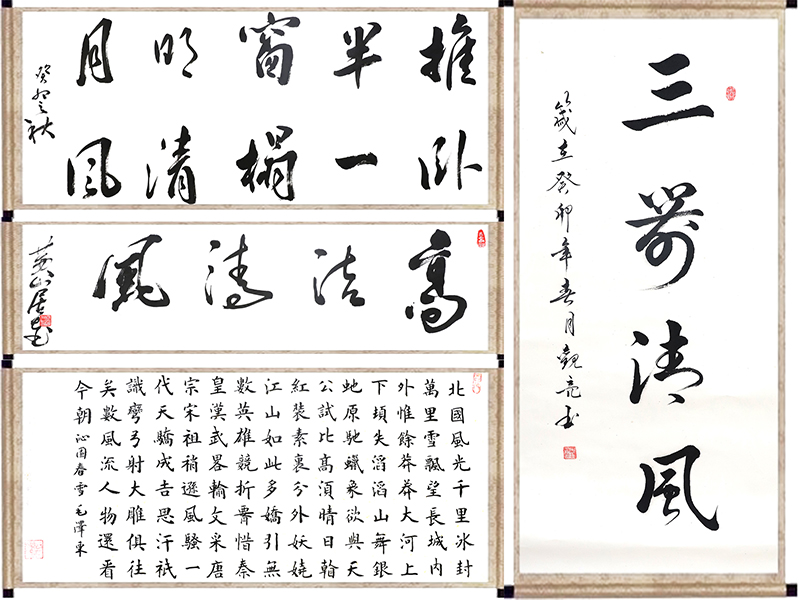 推半窗明月
卧一榻清風
高洁清風
北國風光千里冰封
萬里雪飄望長城内
外惟餘莽莽大河上
下頓失滔滔山舞銀
虵原馳蠟象欲與天
公試比高須晴日看
紅裝素裹分外妖嬈
江山如此多嬌引無
數英雄競折腰惜秦
皇漢武畧輸文采唐
宗宋祖稍遜風騷一
代天驕成吉思汗祇
識彎弓射大雕俱往
矣數風流人物還看
今朝 沁园春雪毛澤東
三清風
歲在癸卯年春月觀亮书